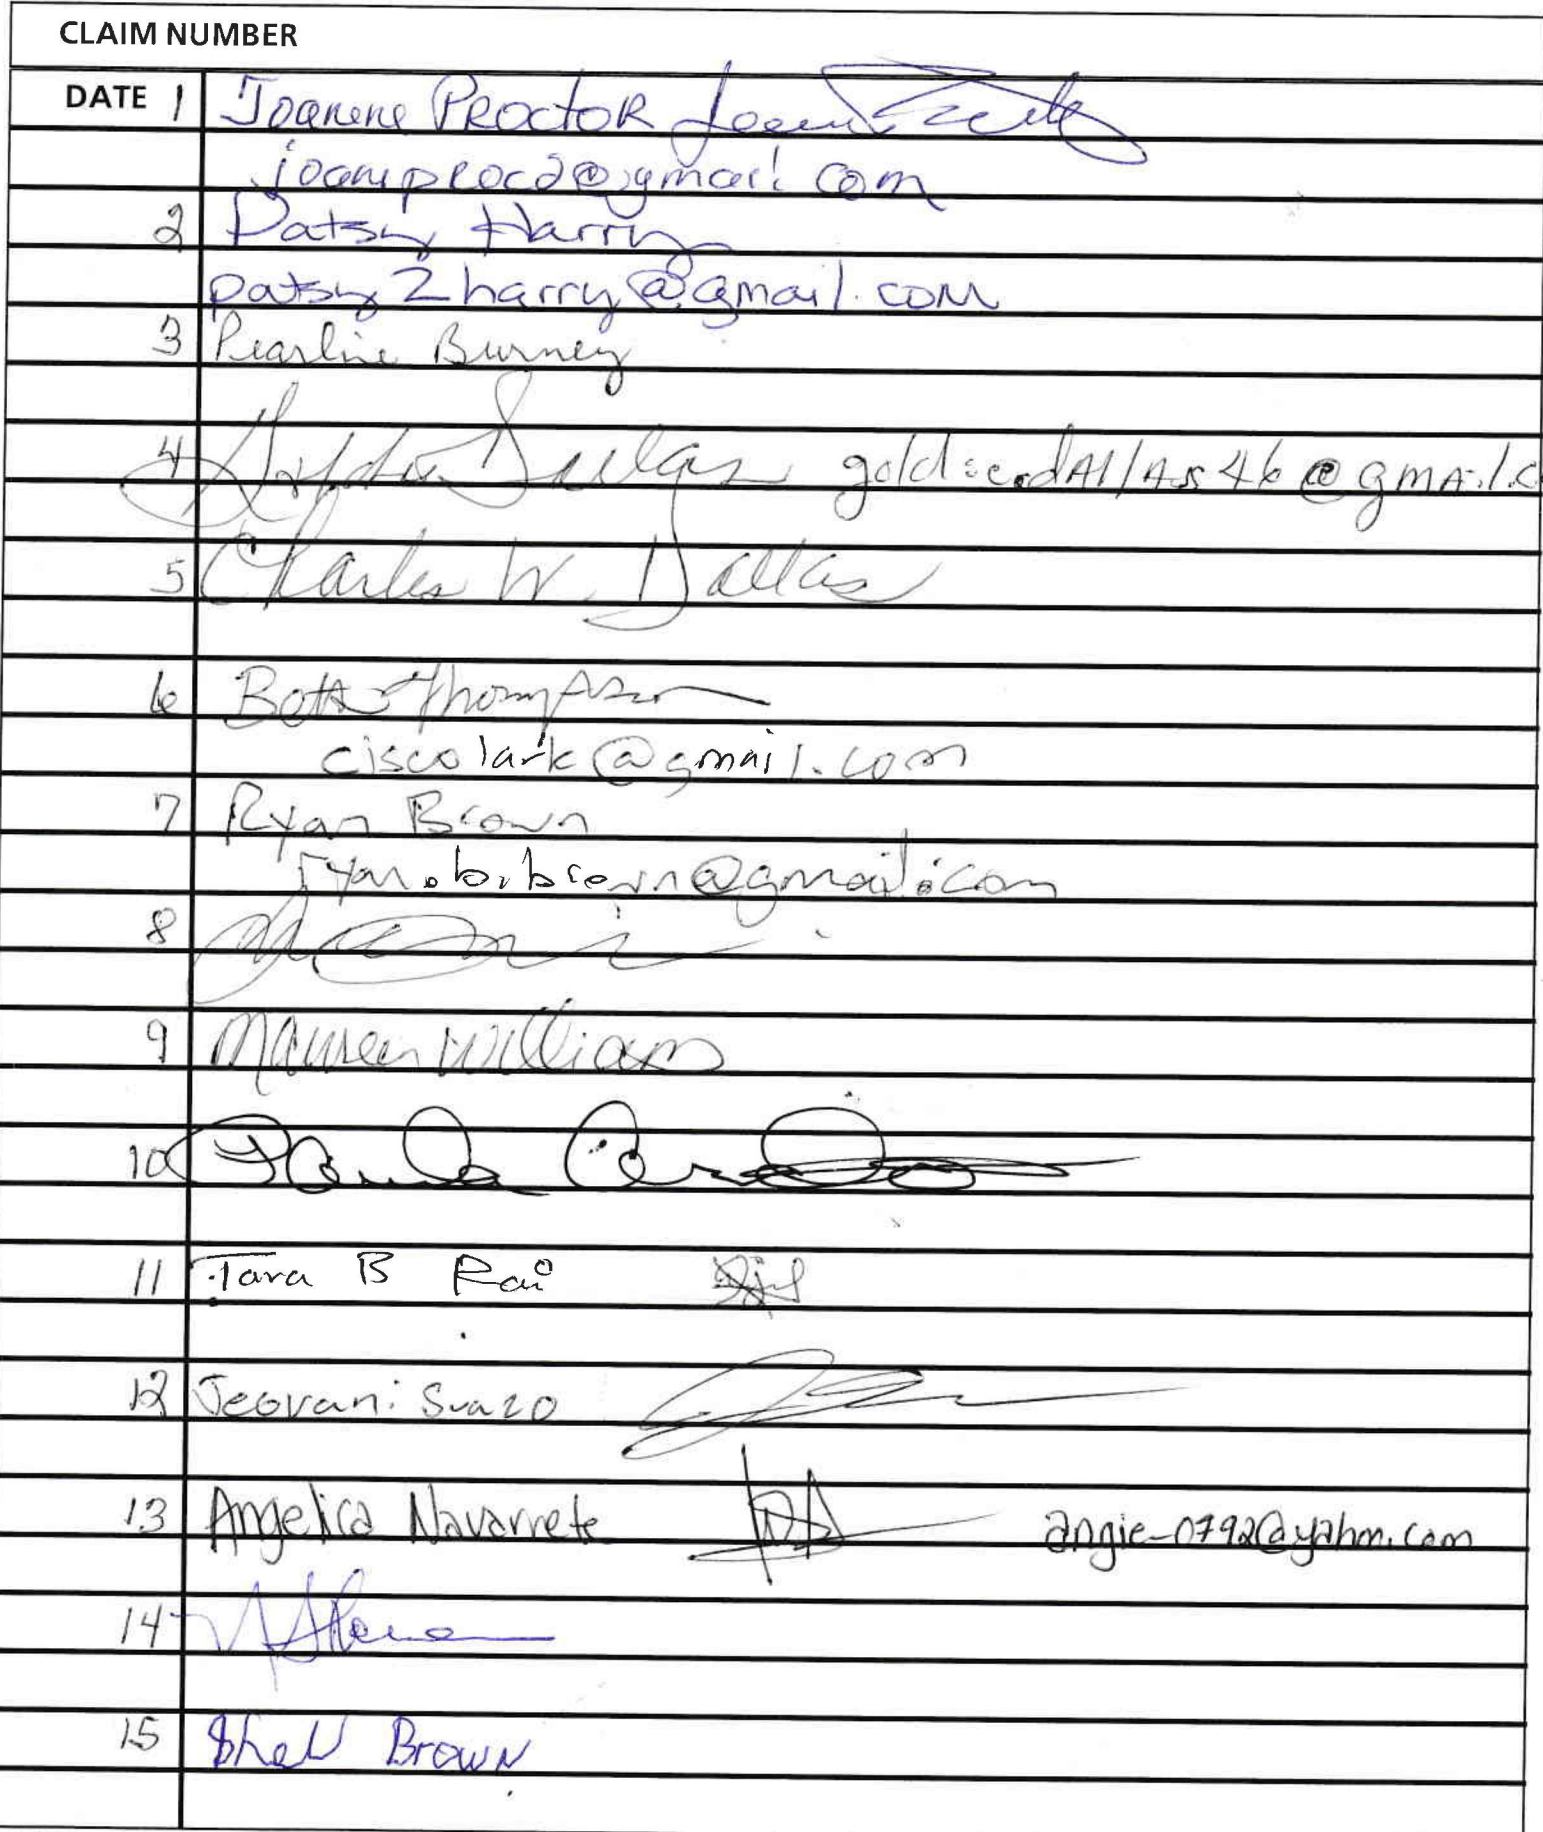 CLAIM NUMBER
DATE 1 Joanene PROCTOR
joaniproc2@gmail.com
2 Patsy Harry
patsy2harry@gmail.com
3 Pearline Burney
4 Dallas goldieedAllAs46@gmAil.c
5 Charles W. Dallas
6 Beth Thompson
ciscolark@gmail.com
7 Ryan Brown
ryan.b.brown@gmail.com
8
9 Maureen Williams
10
11 Tara B Rai
12 Jeovani Suazo
13 Angelica Navarrete angie-0792@yahoo.com
14
15 Brown